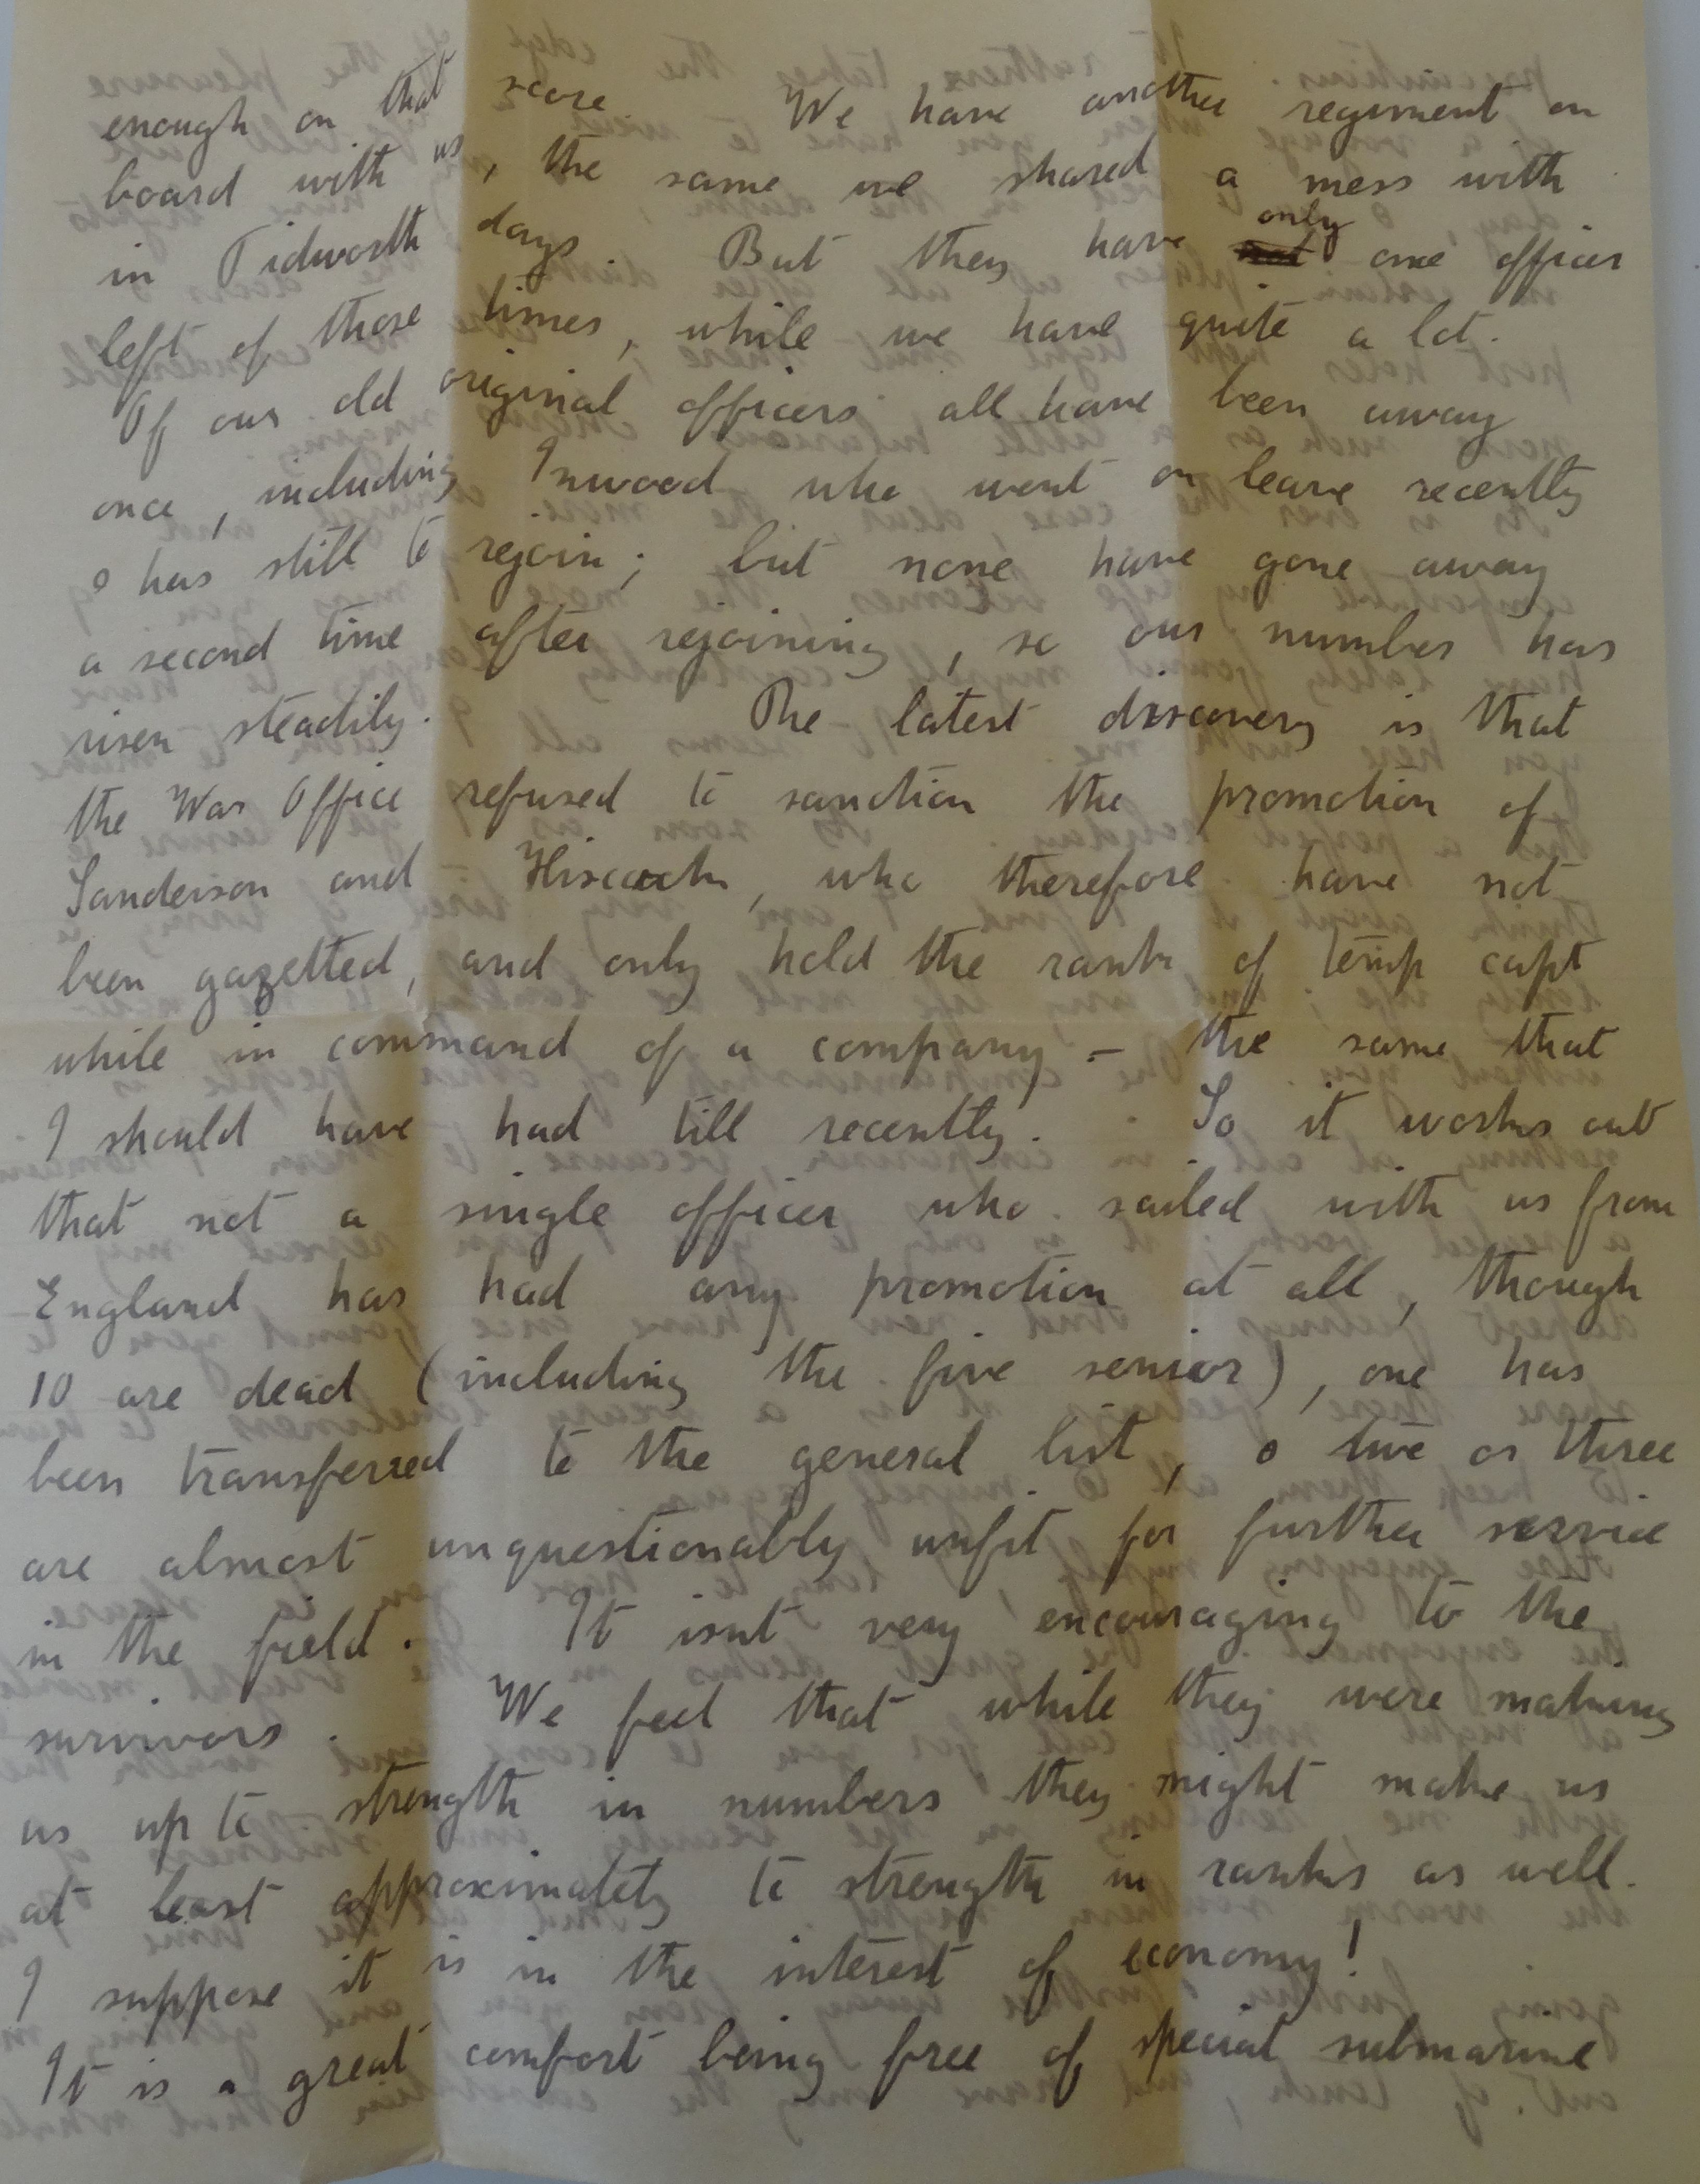 enough on that score We have another regiment on
board with us, the same we shared a mess with
in Tidworth days. But they have only one officer
left of those times, while we have quite a lot.
Of our old original officers all have been away
once, including Inwood who went on leave recently
& has still to rejoin; but none have gone away
a second time after rejoining, so our number has
risen steadily. The latest discovery is that
the War Office refused to sanction the promotion of
Sanderson and Hiscock, who therefore have not
been gazetted, and only hold the rank of temp capt
while in command of a company - the same that
I should have had till recently. So it works out
that not a single officer who sailed with us from
England has had any promotion at all, though
10 are dead (including the five senior), one has
been transferred to the general list, & two or three
are almost unquestionably unfit for further service
in the field. It isnt very encouraging to the
survivors. We feel that while they were making
us up to strength in numbers they might make us
at least approximately to strength in ranks as well.
I suppose it is in the interest of economy!
It is a great comfort being free of special submarine